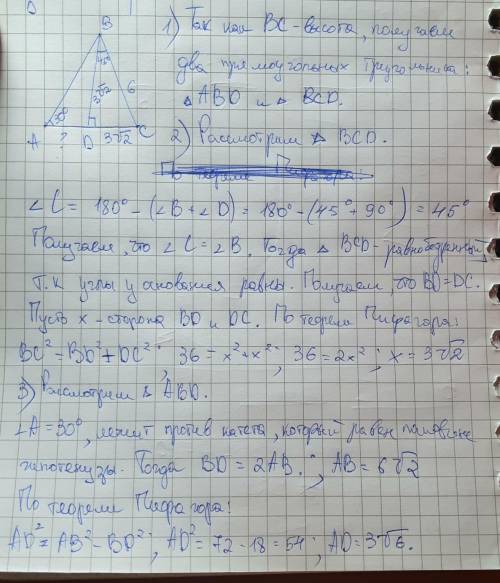 B
45°
3√2
6
30°
A ? D 3√2 C
1) Так как BC-высота, получаем
два прямоугольных треугольника:
△ ABD и △ BCD.
2) Рассмотрим △ BCD.
∠C = 180° - (∠B + ∠D) = 180° - (45° + 90°) = 45°
Получаем, что ∠C = ∠B. Тогда △ BCD - равнобедренный,
т.к углы у основания равны. Получаем, что BD = DC.
Пусть x - сторона BD и DC. По теореме Пифагора:
BC² = BD² + DC²; 36 = x² + x²; 36 = 2x²; x = 3√2
3) Рассмотрим △ ABD.
∠A = 30°, лежит против катета, который равен половине
гипотенузы. Тогда BD = 2AB.; AB = 6√2
По теореме Пифагора:
AD² = AB² - BD²; AD² = 72 - 18 = 54; AD = 3√6.